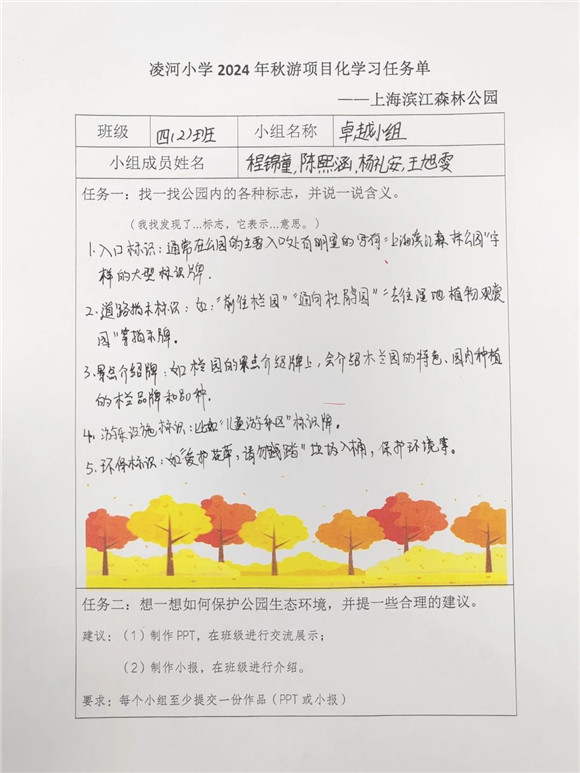 凌河小学 2024 年秋游项目化学习任务单
——上海滨江森林公园
班级 四(2)班 小组名称 卓越小组
小组成员姓名 程锦童,陈熙涵,杨礼安,王旭雯
任务一：找一找公园内的各种标志，并说一说含义。
（我找发现了…标志，它表示…意思。）
1.入口标识：通常在公园的主要入口处有明显的写有"上海滨江森林公园"字
样的大型标识牌.
2.道路指示标识：如："前往栏园""通向杜鹃园""去往湿地植物观赏
园"等指示牌。
3.景点介绍牌：如栏园的景点介绍牌上,会介绍木兰园的特色、园内种植
的栏品牌和80种.
4.游乐设施标识：比如"儿童游乐区"标识牌。
5.环保标识：如"爱护花草,请勿践踏"垃圾入桶,保护环境等。
任务二：想一想如何保护公园生态环境，并提一些合理的建议。
建议：（1）制作PPT，在班级进行交流展示；
（2）制作小报，在班级进行介绍。
要求：每个小组至少提交一份作品（PPT或小报）